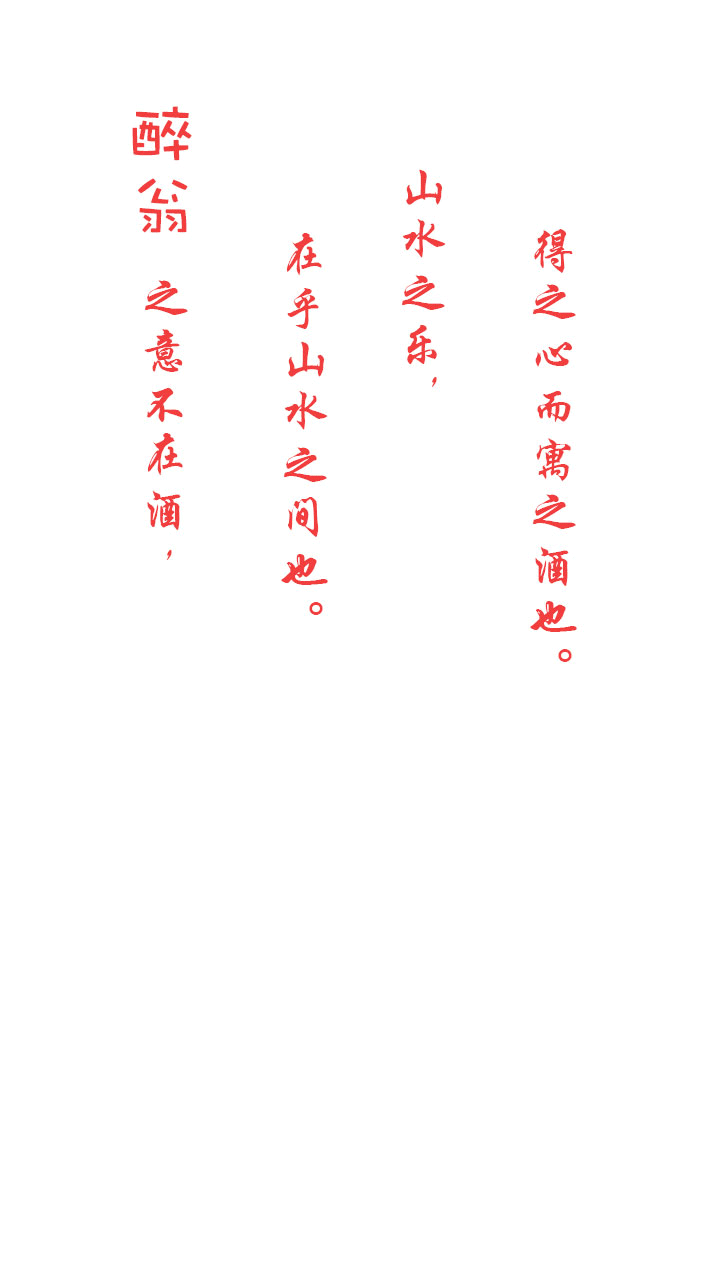 醉翁之意不在酒，
在乎山水之间也。
山水之乐，
得之心而寓之酒也。